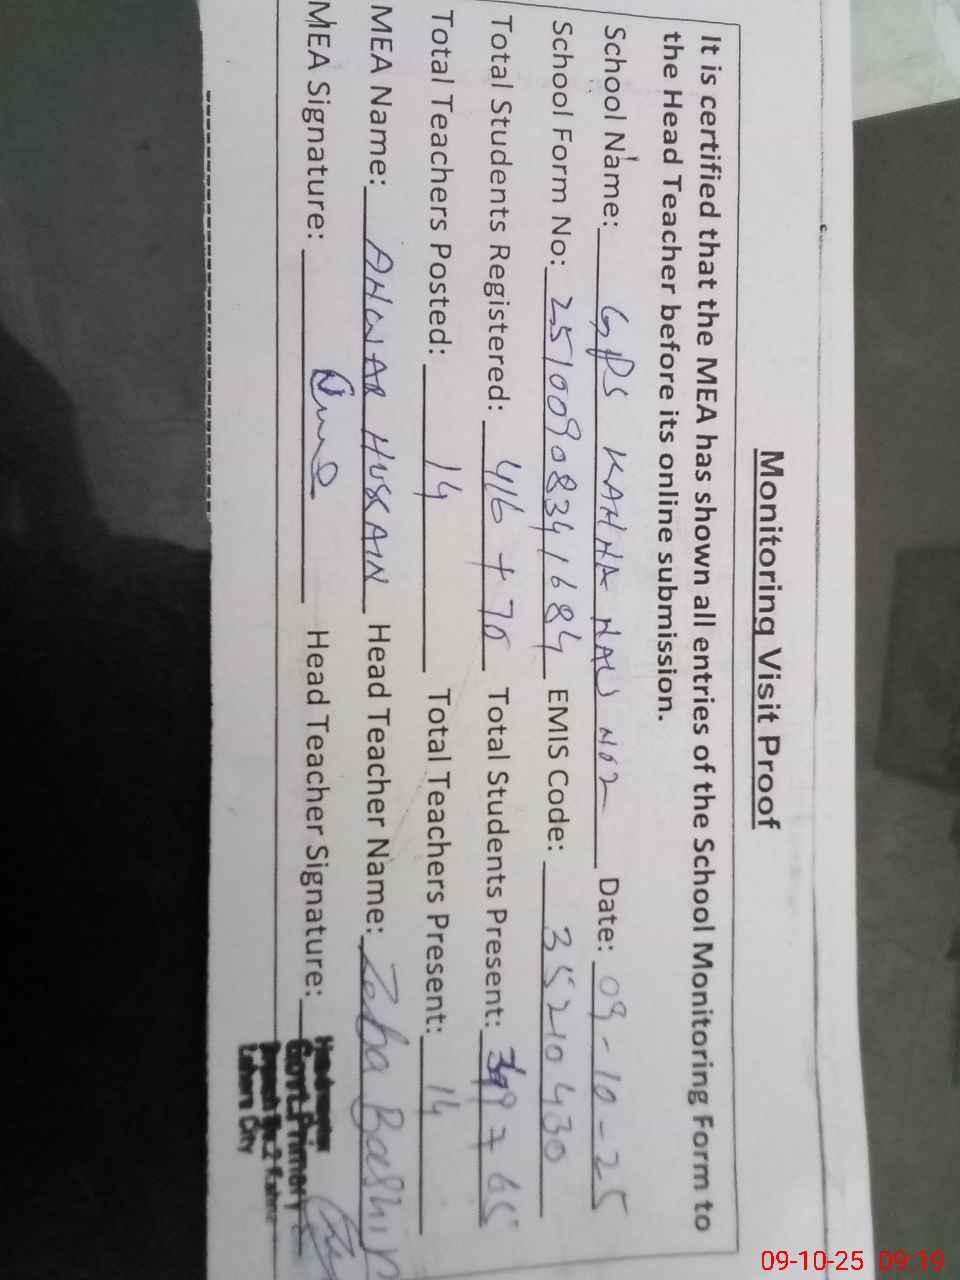 Monitoring Visit Proof
It is certified that the MEA has shown all entries of the School Monitoring Form to
the Head Teacher before its online submission.
School Name: GPS KAHNA NAU NO2 Date: 09-10-25
School Form No: 2510090834 1684 EMIS Code: 35210430
Total Students Registered: 416 + 70 Total Students Present: 399 + 65
Total Teachers Posted: 14 Total Teachers Present: 14
MEA Name: ANWAR HUSSAIN Head Teacher Name: Zeba Bashir
MEA Signature: Head Teacher Signature:
Headmaster
Govt. Primary
No. 2 Kahna
Lahore City
09-10-25 09:19